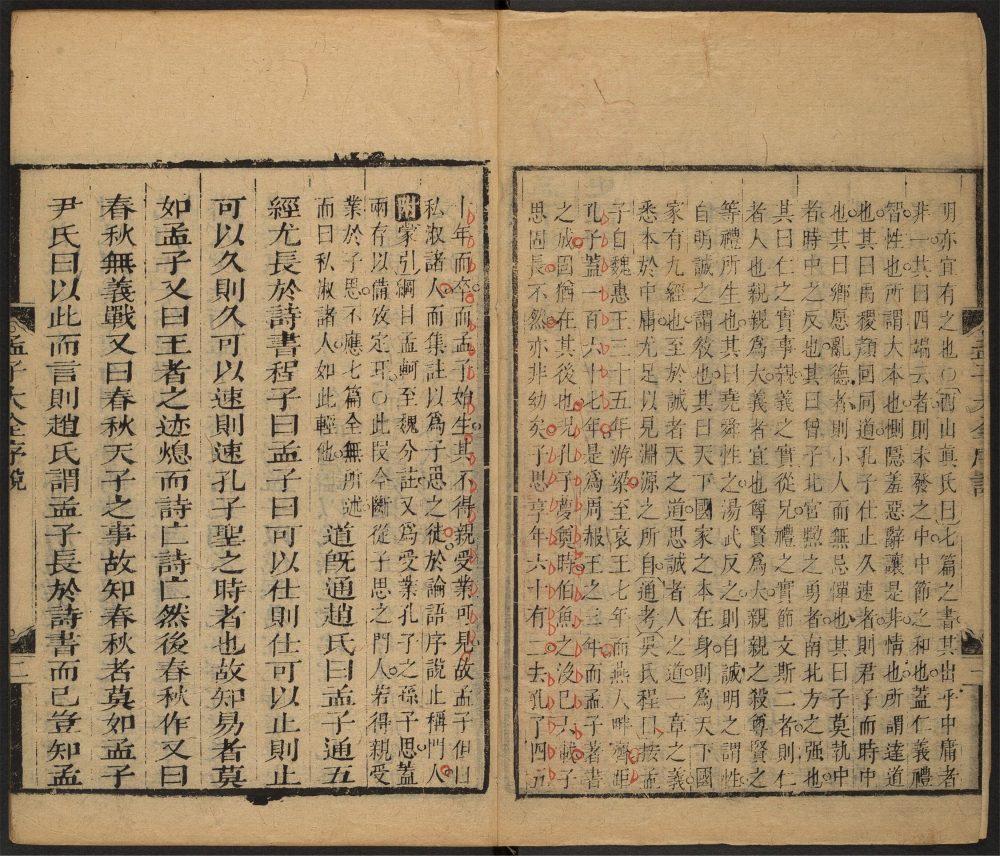 明亦宜有之也○西山眞氏曰七篇之書其出乎中庸者
非一其曰四端云者則未發之中中節之和也蓋仁義禮
智性也所謂大本也惻隱羞惡辭讓是非情也所謂達道
也其曰禹稷顏回同道孔子仕止久速者則君子而時中
也其曰鄉愿亂德者則小人而無忌憚也其曰子莫執中
者時中之反也其曰曾子北宮黝之勇者南北方之强也
其曰仁之實事親義之實從兄禮之實節文斯二者則仁
者人也親親爲大義者宜也尊賢爲大親親之殺尊賢之
等禮所生也其曰堯舜性之湯武反之則自誠明之謂性
自明誠之謂敎也其曰天下國家之本在身則爲天下國
家有九經也至於誠者天之道思誠者人之道一章之義
悉本於中庸尤足以見淵源之所自通考吳氏程曰按孟
子自魏惠王三十五年游梁至哀王七年而燕人畔齊距
孔子蓋一百六十七年是爲周赧王之三年而孟子著書
之成固猶在其後也况孔子喪夐時伯魚之沒已久載子
思固長不然亦非幼矣子思享年六十有二去孔子四五
十年而卒而孟子始生其不得親受業可見故孟子但曰
私淑諸人而集註以爲子思之徒於論語序說止稱門人
附蒙引綱目孟軻至魏分註又爲受業孔子之孫子思蓋
兩存以備攷定耳○此叚今斷從子思之門人若得親受
業於子思不應七篇全無所述
而曰私淑諸人如此輕他
道旣通趙氏曰孟子通五
經尤長於詩書程子曰孟子曰可以仕則仕可以止則止
可以久則久可以速則速孔子聖之時者也故知易者莫
如孟子又曰王者之迹熄而詩亡詩亡然後春秋作又曰
春秋無義戰又曰春秋天子之事故知春秋者莫如孟子
尹氏曰以此而言則趙氏謂孟子長於詩書而已豈知孟
孟子大全序說
二